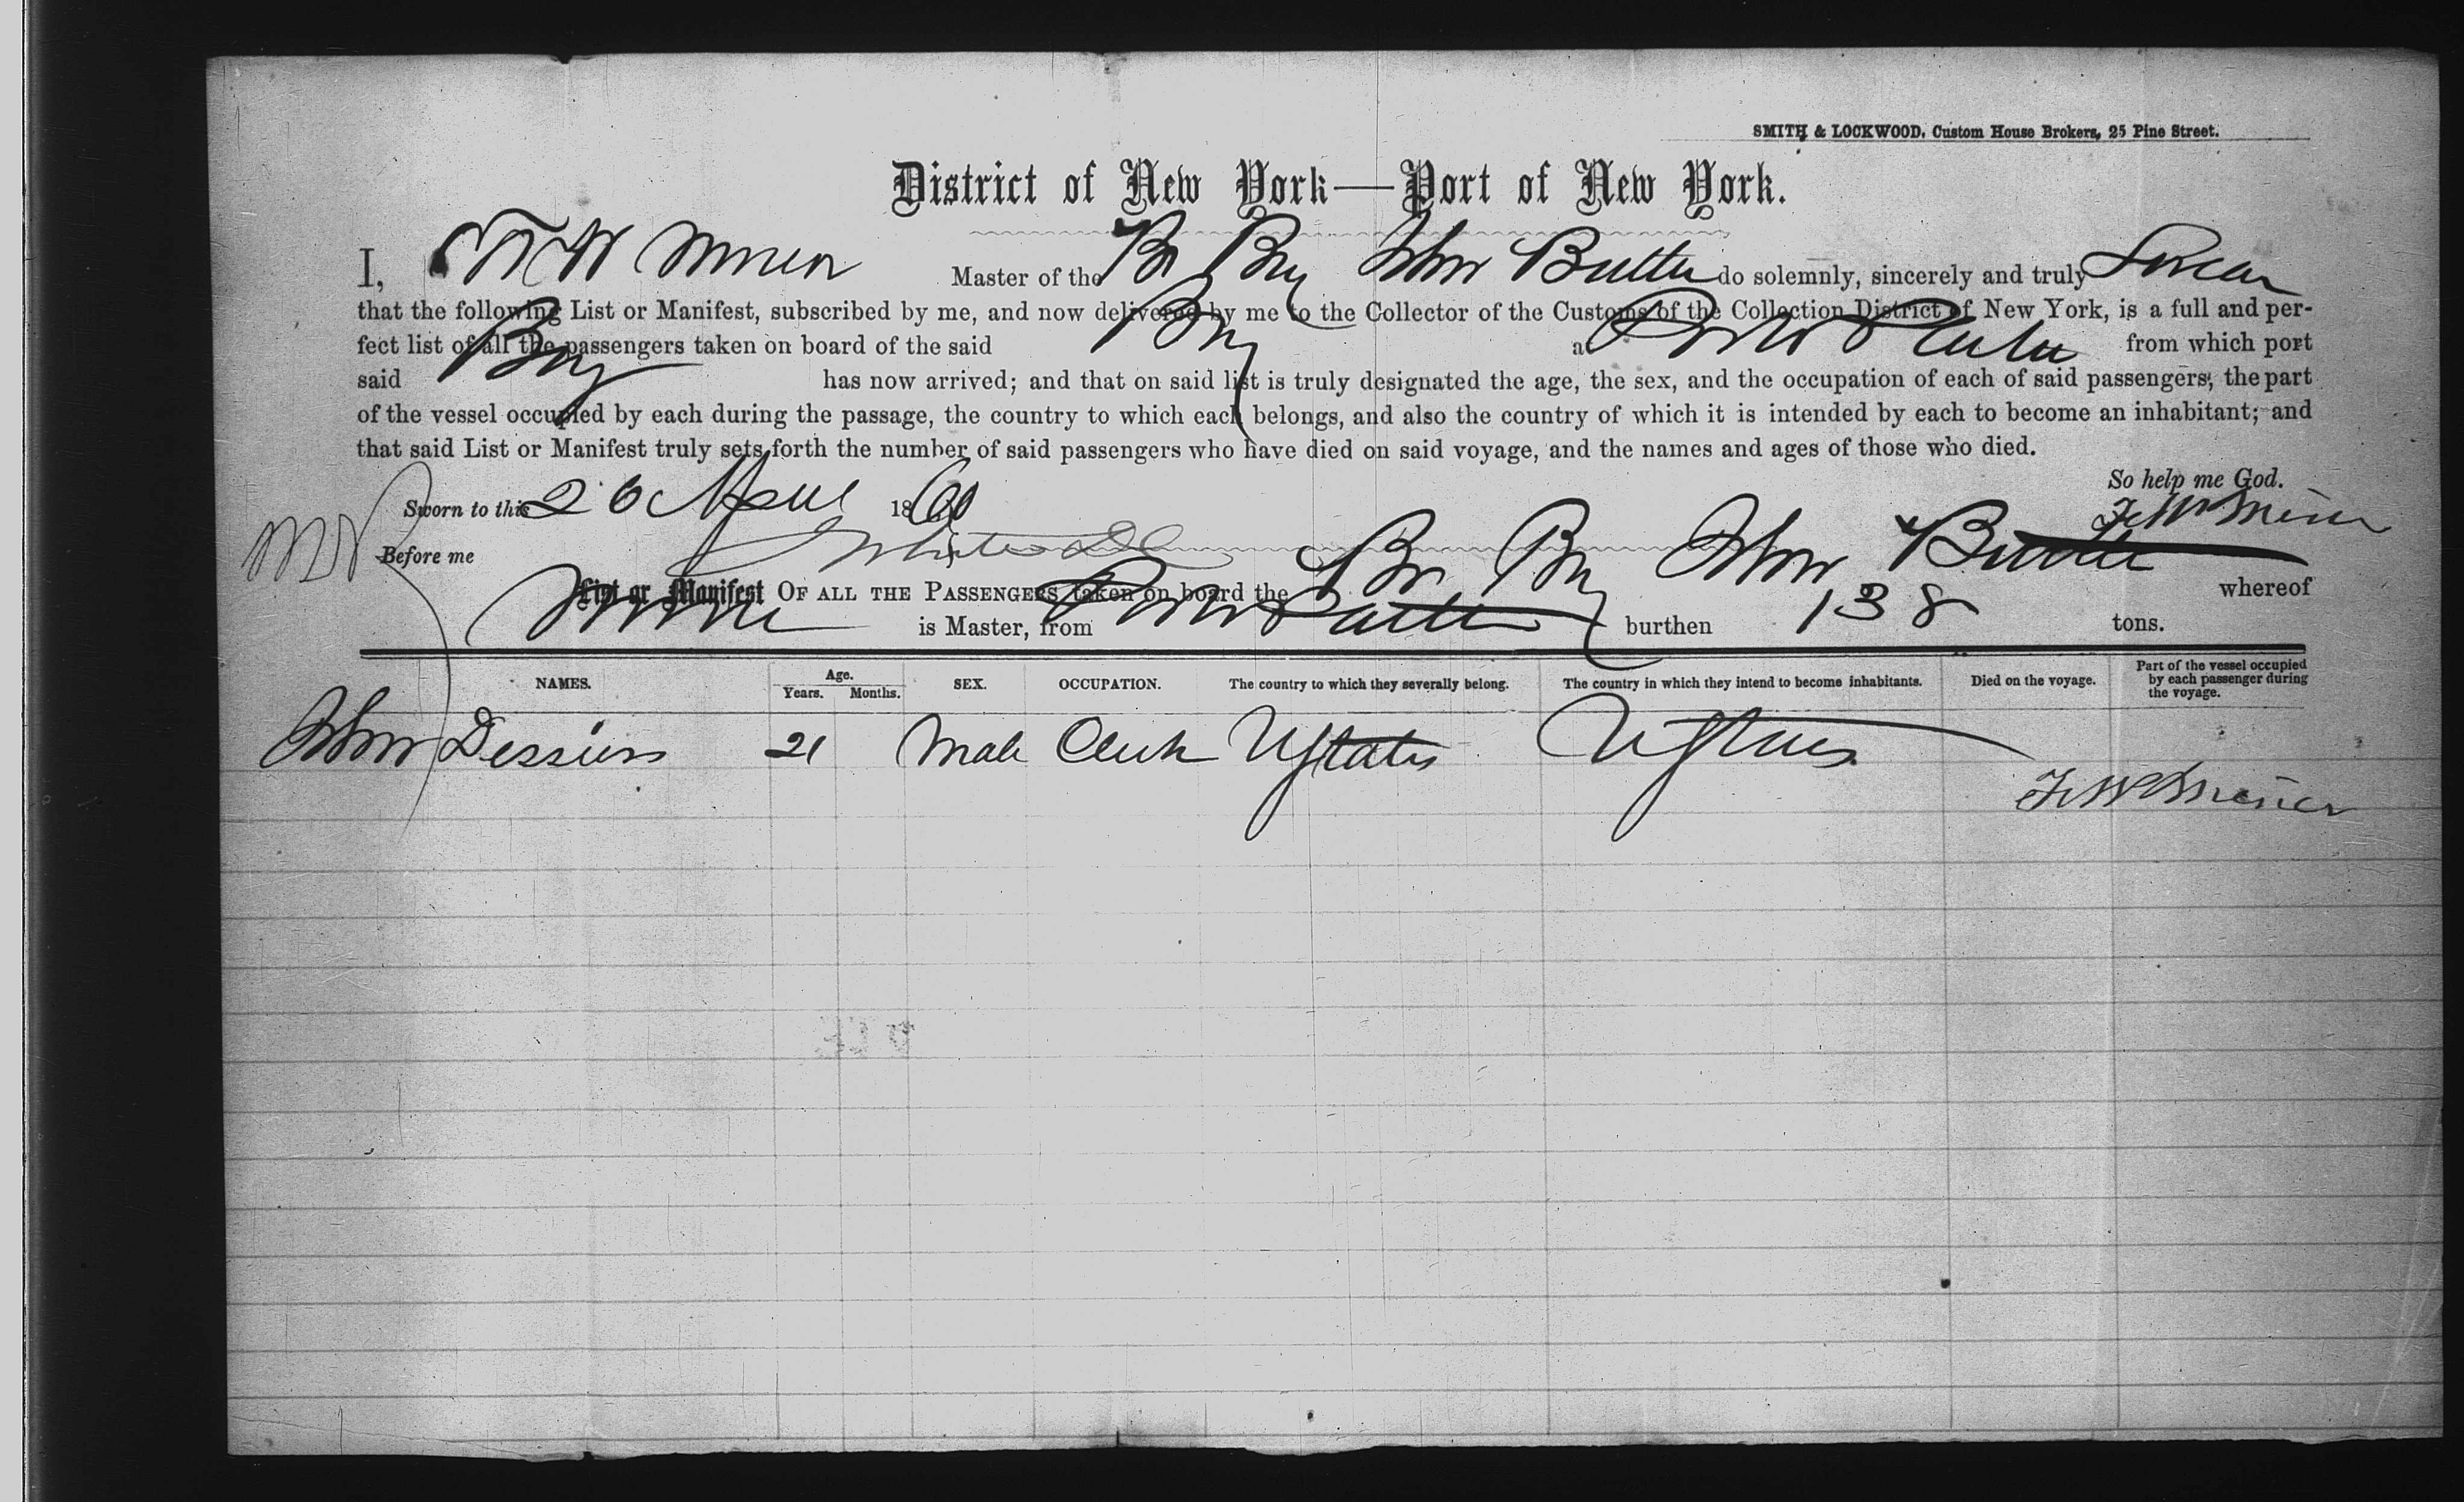 SMITH & LOCKWOOD, Custom House Brokers, 25 Pine Street.
District of New York—Port of New York.
I, F W Master of the Br Brig John Butler do solemnly, sincerely and truly Swear
that the following List or Manifest, subscribed by me, and now delivered by me to the Collector of the Customs of the Collection District of New York, is a full and per-
fect list of all the passengers taken on board of the said Brig at Porto from which port
said Brig has now arrived; and that on said list is truly designated the age, the sex, and the occupation of each of said passengers, the part
of the vessel occupied by each during the passage, the country to which each belongs, and also the country of which it is intended by each to become an inhabitant; and
that said List or Manifest truly sets forth the number of said passengers who have died on said voyage, and the names and ages of those who died.
So help me God.
Sworn to this 26 April 1860
Before me
List or Manifest OF ALL THE PASSENGERS taken on board the Br Brig John Butler whereof
is Master, from Porto burthen 138 tons.
NAMES. Age. Years. Months. SEX. OCCUPATION. The country to which they severally belong. The country in which they intend to become inhabitants. Died on the voyage. Part of the vessel occupied by each passenger during the voyage.
John 21 Male Clerk U States U States